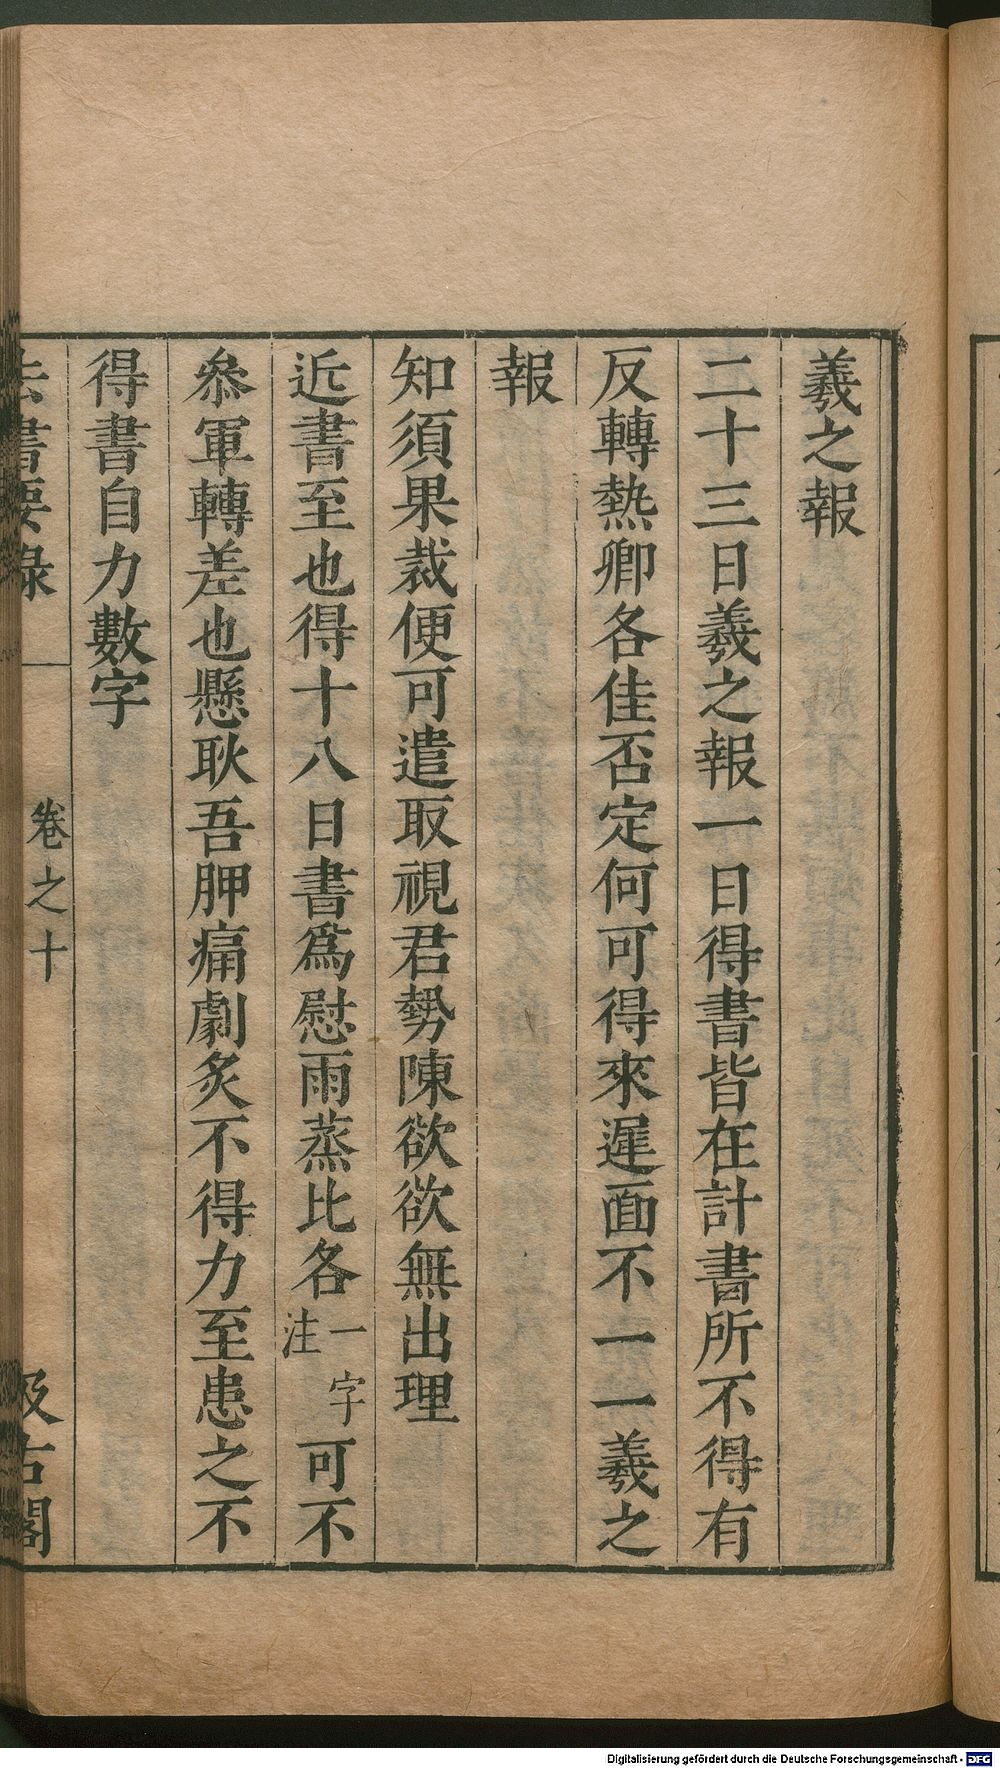 羲之報
二十三日羲之報一日得書皆在計書所不得有
反轉熱卿各佳否定何可得來遲面不一一羲之
報
知須果栽便可遣取視君勢陳欲欲無出理
近書至也得十八日書爲慰雨蒸比各一字注可不
叅軍轉差也懸耿吾胛痛劇炙不得力至患之不
得書自力數字
法書要錄 卷之十 汲古閣
Digitalisierung gefördert durch die Deutsche Forschungsgemeinschaft - DFG